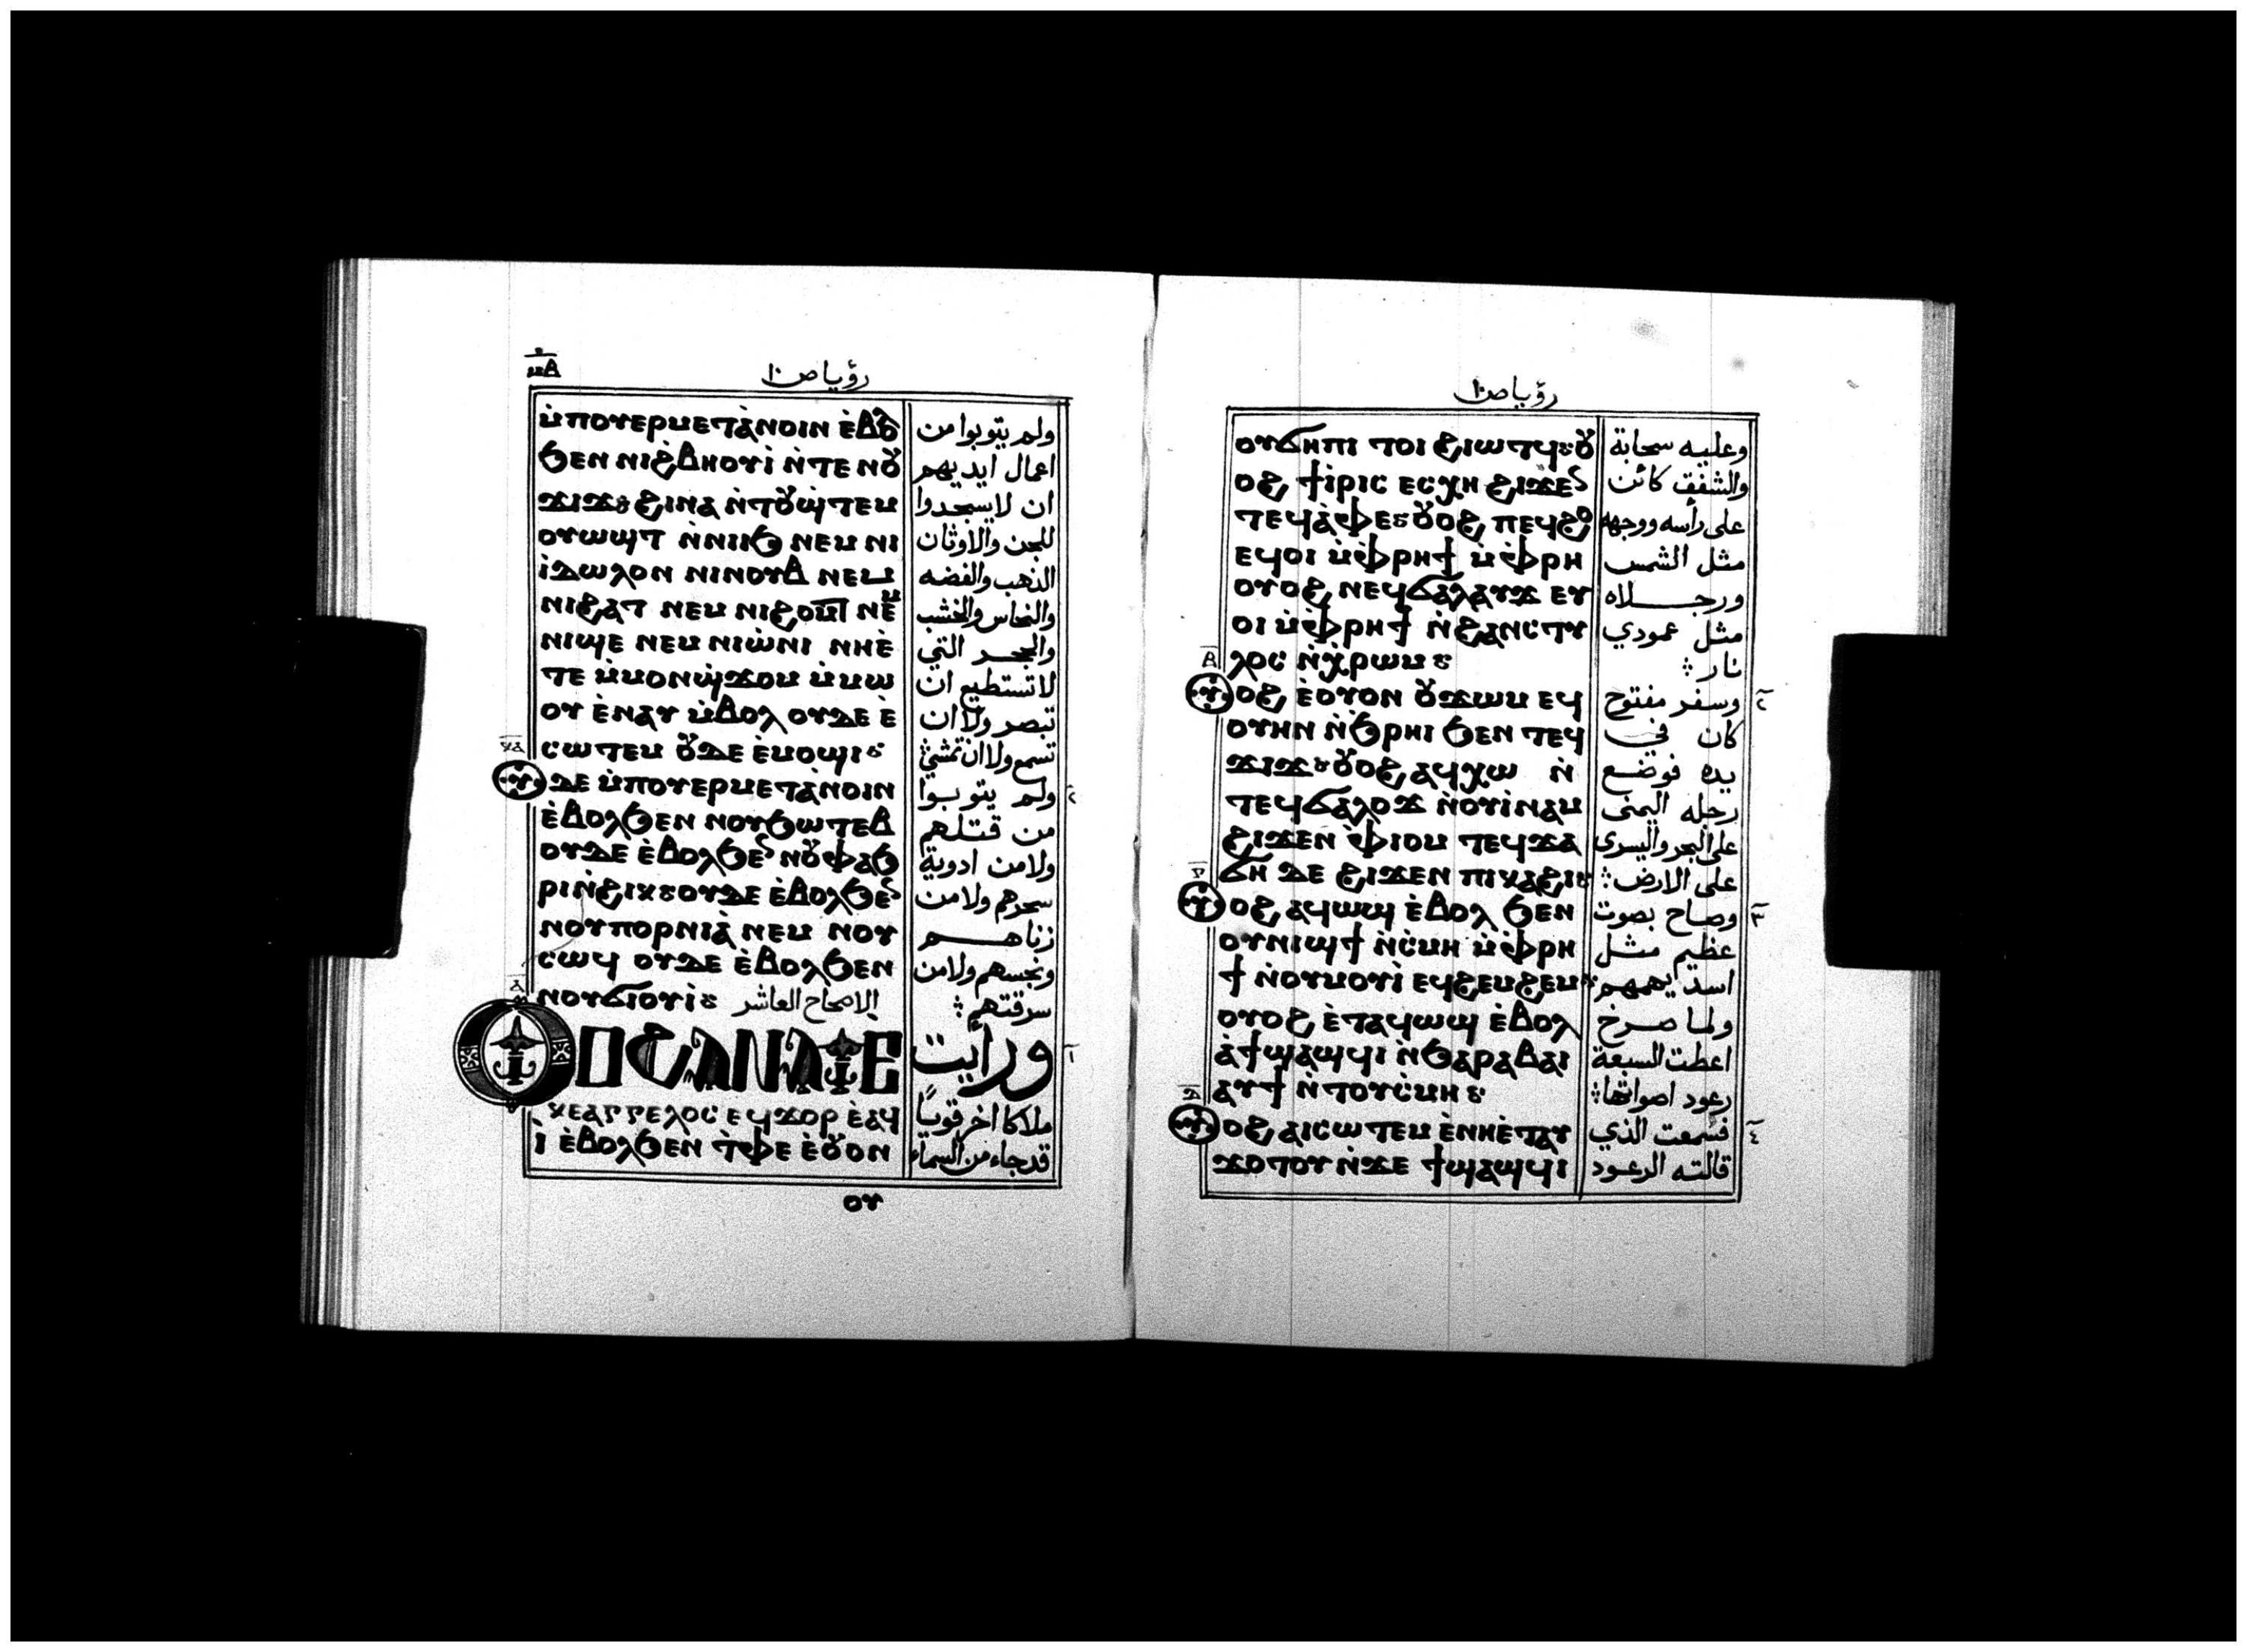 رؤيا ص١٠
ⲙ̀ⲡⲟⲩⲉⲣⲙⲉⲧⲁ̀ⲛⲟⲓⲛ ⲉ̀ⲃⲟⲗ
ϧⲉⲛ ⲛⲓϩⲃⲏⲟⲩⲓ̀ ⲛ̀ⲧⲉ ⲛⲟⲩ
ϫⲓϫ ϩⲓⲛⲁ ⲛ̀ⲧⲟⲩϣ̀ⲧⲉⲙ
ⲟⲩⲱϣⲧ ⲛ̀ⲛⲓⲓϧ ⲛⲉⲙ ⲛⲓ
ⲓ̀ⲇⲱⲗⲟⲛ ⲛⲓⲛⲟⲩⲃ ⲛⲉⲙ
ⲛⲓϩⲁⲧ ⲛⲉⲙ ⲛⲓϩⲟⲙⲧ ⲛⲉⲙ
ⲛⲓϣⲉ ⲛⲉⲙ ⲛⲓⲱ̀ⲛⲓ ⲛⲏⲉ̀
ⲧⲉ ⲙ̀ⲙⲟⲛϣ̀ϫⲟⲙ ⲙ̀ⲙⲱ
ⲟⲩ ⲉ̀ⲛⲁⲩ ⲙ̀ⲃⲟⲗ ⲟⲩⲇⲉ ⲉ̀
ⲥⲱⲧⲉⲙ ⲟⲩⲇⲉ ⲉ̀ⲙⲟϣⲓ
ⲟⲩⲇⲉ ⲙ̀ⲡⲟⲩⲉⲣⲙⲉⲧⲁ̀ⲛⲟⲓⲛ
ⲉ̀ⲃⲟⲗϧⲉⲛ ⲛⲟⲩϧⲱⲧⲉⲃ
ⲟⲩⲇⲉ ⲉ̀ⲃⲟⲗϧⲉⲛ ⲛⲟⲩⲫⲁϧ
ⲣⲓⲛ̀ϩⲓⲕ ⲟⲩⲇⲉ ⲉ̀ⲃⲟⲗϧⲉⲛ
ⲛⲟⲩⲡⲟⲣⲛⲓⲁ̀ ⲛⲉⲙ ⲛⲟⲩ
ⲥⲱϥ ⲟⲩⲇⲉ ⲉ̀ⲃⲟⲗϧⲉⲛ
ⲛⲟⲩϭⲓⲟⲩⲓ̀ الاصحاح العاشر
ⲟⲩⲟϩ ⲁⲓⲛⲁⲩ ⲉ
ⲕⲉⲁⲅⲅⲉⲗⲟⲥ ⲉϥϫⲟⲣ ⲉ̀ⲁϥ
ⲓ̀ ⲉ̀ⲃⲟⲗϧⲉⲛ ⲧ̀ⲫⲉ ⲉ̀ⲟⲩⲟⲛ
ⲟⲩ
ولم يتوبوا من
اعمال ايديهم
ان لا يسجدوا
للجن والاوثان
الذهب والفضه
والنحاس والخشب
والحجر التي
لا تستطيع ان
تبصر ولا ان
تسمع ولا ان تمشي
ولم يتوبوا
من قتلهم
ولا من ادوية
سحرهم ولا من
زناهم
ونجسهم ولا من
سرقتهم
ورأيت
ملاكا اخر قويًا
قد جاء من السماء
رؤيا ص١٠
ⲟⲩϭⲏⲡⲓ ⲧⲟⲓ ϩⲓⲱⲧϥ ⲟⲩ
ⲟϩ ϯⲓ̀ⲣⲓⲥ ⲉⲥⲭⲏ ϩⲓϫⲉⲛ
ⲧⲉϥⲁ̀ⲫⲉ ⲟⲩⲟϩ ⲡⲉϥϩⲟ
ⲉϥⲟⲓ ⲙ̀ⲫ̀ⲣⲏϯ ⲙ̀ⲫ̀ⲣⲏ
ⲟⲩⲟϩ ⲛⲉϥϭⲁⲗⲁⲩϫ ⲉⲩ
ⲟⲓ ⲙ̀ⲫ̀ⲣⲏϯ ⲛ̀ϩⲁⲛⲥⲧⲩ
ⲗⲟⲥ ⲛ̀ⲭ̀ⲣⲱⲙ
ⲟⲩⲟϩ ⲉ̀ⲟⲩⲟⲛ ⲟⲩϫⲱⲙ ⲉϥ
ⲟⲩⲏⲛ ⲛ̀ϧ̀ⲣⲏⲓ ϧⲉⲛ ⲧⲉϥ
ϫⲓϫ ⲟⲩⲟϩ ⲁϥⲭⲱ ⲛ̀
ⲧⲉϥϭⲁⲗⲟϫ ⲛ̀ⲟⲩⲓ̀ⲛⲁⲙ
ϩⲓϫⲉⲛ ⲫ̀ⲓⲟⲙ ⲧⲉϥϫⲁ
ϭⲏ ⲇⲉ ϩⲓϫⲉⲛ ⲡⲓⲕⲁϩⲓ
ⲟⲩⲟϩ ⲁϥⲱϣ ⲉ̀ⲃⲟⲗ ϧⲉⲛ
ⲟⲩⲛⲓϣϯ ⲛ̀ⲥ̀ⲙⲏ ⲙ̀ⲫ̀ⲣⲏ
ϯ ⲛ̀ⲟⲩⲙⲟⲩⲓ̀ ⲉϥϩⲉⲙϩⲉⲙ
ⲟⲩⲟϩ ⲉ̀ⲧⲁϥⲱϣ ⲉ̀ⲃⲟⲗ
ⲁ̀ϯϣⲁϣϥⲓ ⲛ̀ϧⲁⲣⲁⲃⲁⲓ
ⲁⲩϯ ⲛ̀ⲧⲟⲩⲥ̀ⲙⲏ
ⲟⲩⲟϩ ⲁⲓⲥⲱⲧⲉⲙ ⲉ̀ⲛⲏⲉ̀ⲧⲁⲩ
ϫⲟⲧⲟⲩ ⲛ̀ϫⲉ ϯϣⲁϣϥⲓ
وعليه سحابة
والشفق كائن
على رأسه ووجهه
مثل الشمس
ورجلاه
مثل عمودي
نار
وسفر مفتوح
كان في
يده فوضع
رجله اليمنى
على البحر واليسرى
على الارض
وصاح بصوت
عظيم مثل
اسد يهمهم
ولما صرخ
اعطت السبعة
رعود اصواتها
فسمعت الذي
قالته الرعود